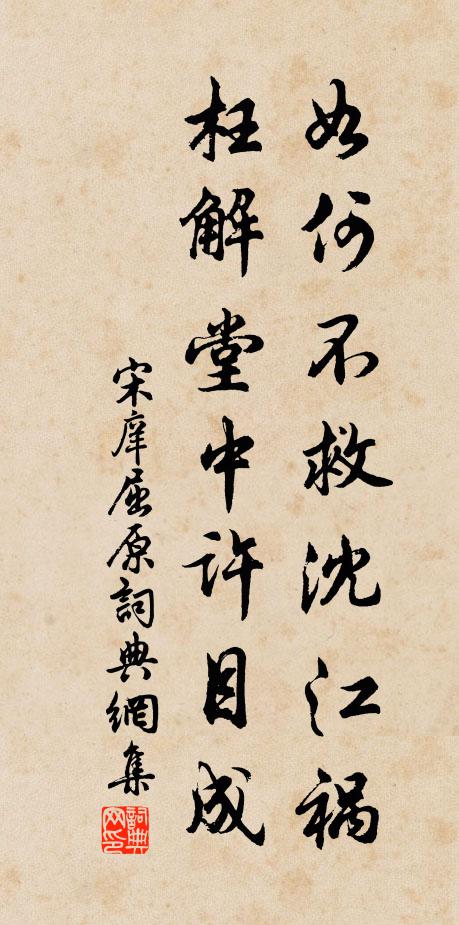 如何不救沈江祸
枉解堂中许目成
宋庠屈原詞典網集
詞典網印